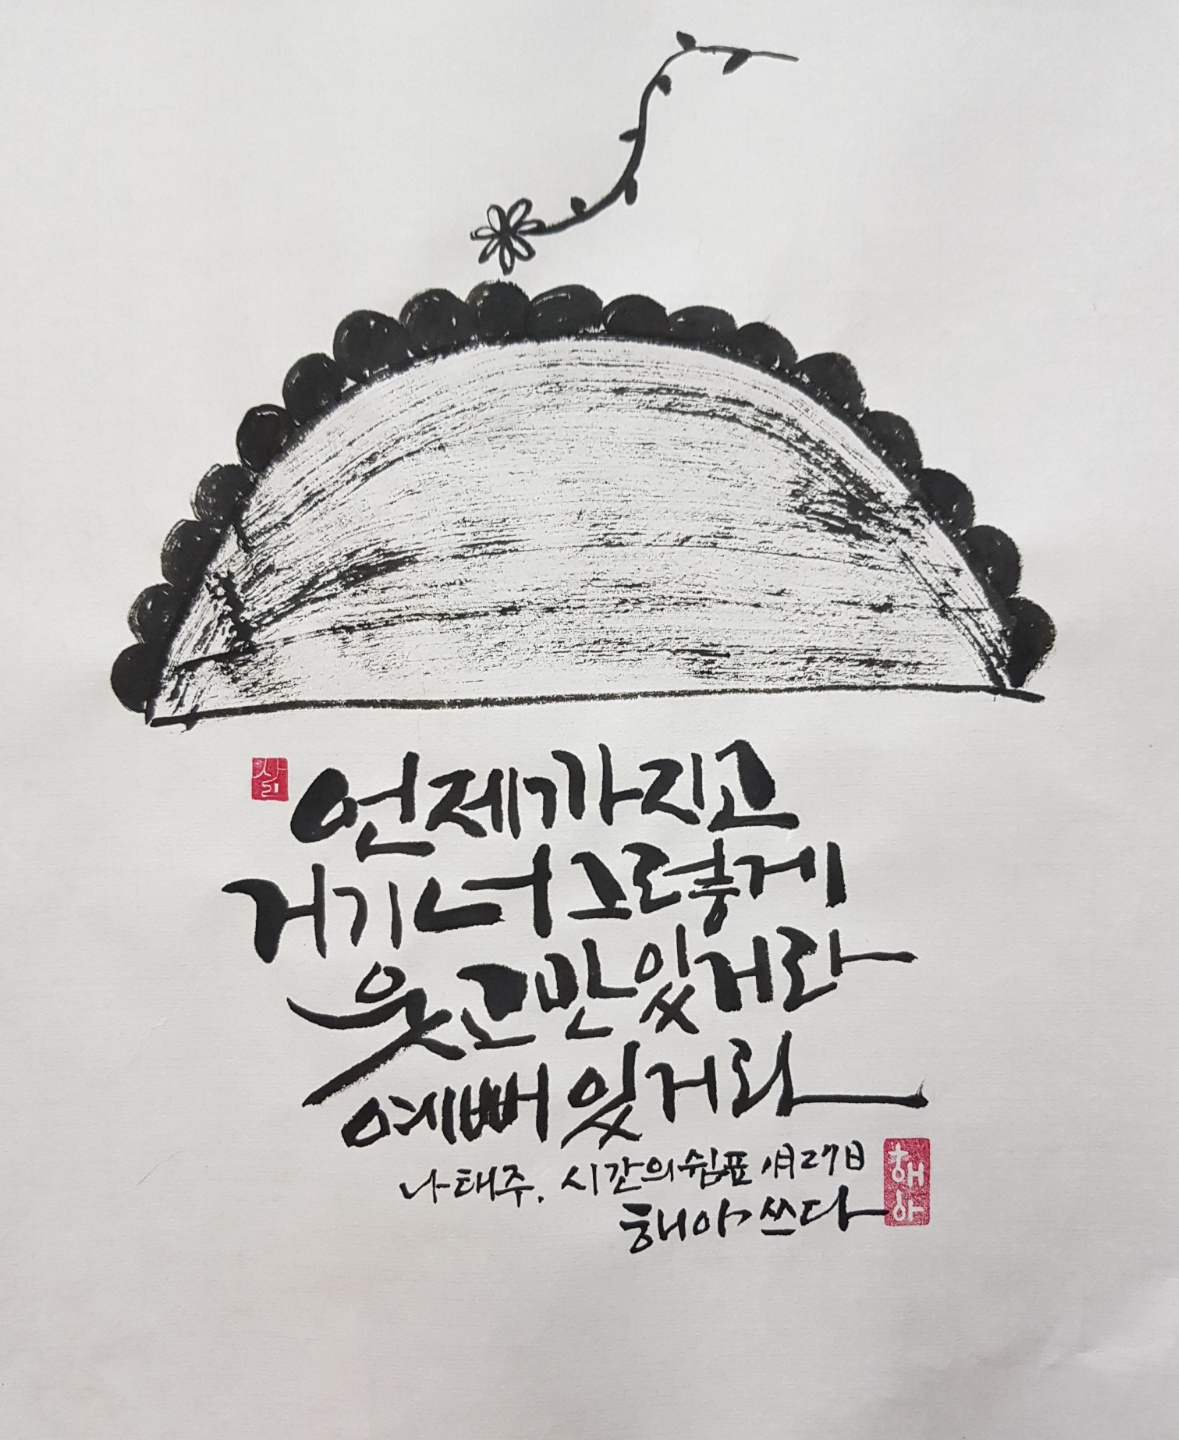 언제까지고
거기 너 그렇게
웃고만 있거라
예뻐 있거라
나태주. 시간의쉼표 1月27日
해야 쓰다